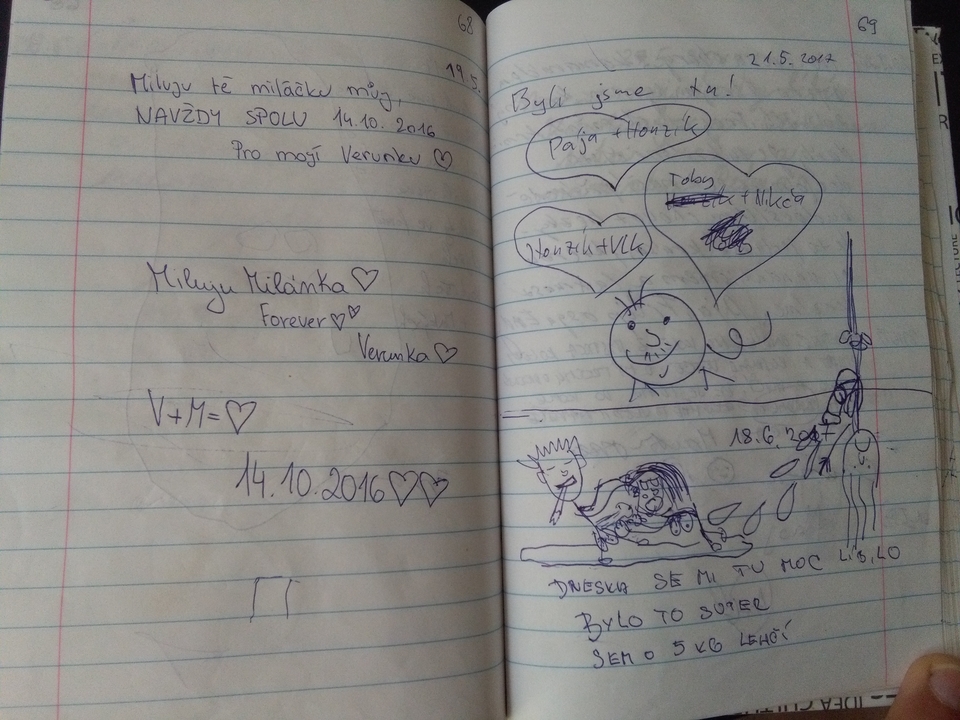 68
19.5.
Miluju tě miláčku můj,
NAVŽDY SPOLU 14.10. 2016
Pro moji Verunku ♡
Miluju Milánka ♡
Forever ♡♡
Verunka ♡
V+M=♡
14.10.2016 ♡♡
69
21.5. 2017
Byli jsme tu!
Pája + Honzík
Toby
+ Nikča
Honzík + Vlk
18.6. 2017
DNESKA SE MI TU MOC LÍBILO
BYLO TO SUPER
SEM O 5 KG LEHČÍ